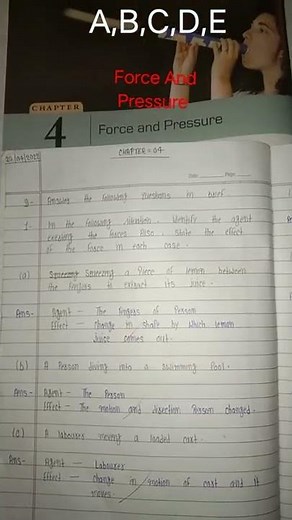 A,B,C,D,E
Force And
Pressure
CHAPTER
4
Force and Pressure
CHAPTER - 04
Date Page
Q- Answer the following questions in brief
1- In the following situation, identify the agent
exerting the force. State the effect
of the force in each case.
(a) Squeezing a piece of lemon between
the fingers to extract its juice.
Ans- Agent - The fingers of Person
Effect - Change in shape by which lemon
Juice comes out.
(b) A Person diving into a swimming Pool.
Ans- Agent - The Person
Effect - The motion and direction Person changed.
(c) A labourer moving a loaded cart.
Ans- Agent - Labourer
Effect - change in motion of cart and it
moves